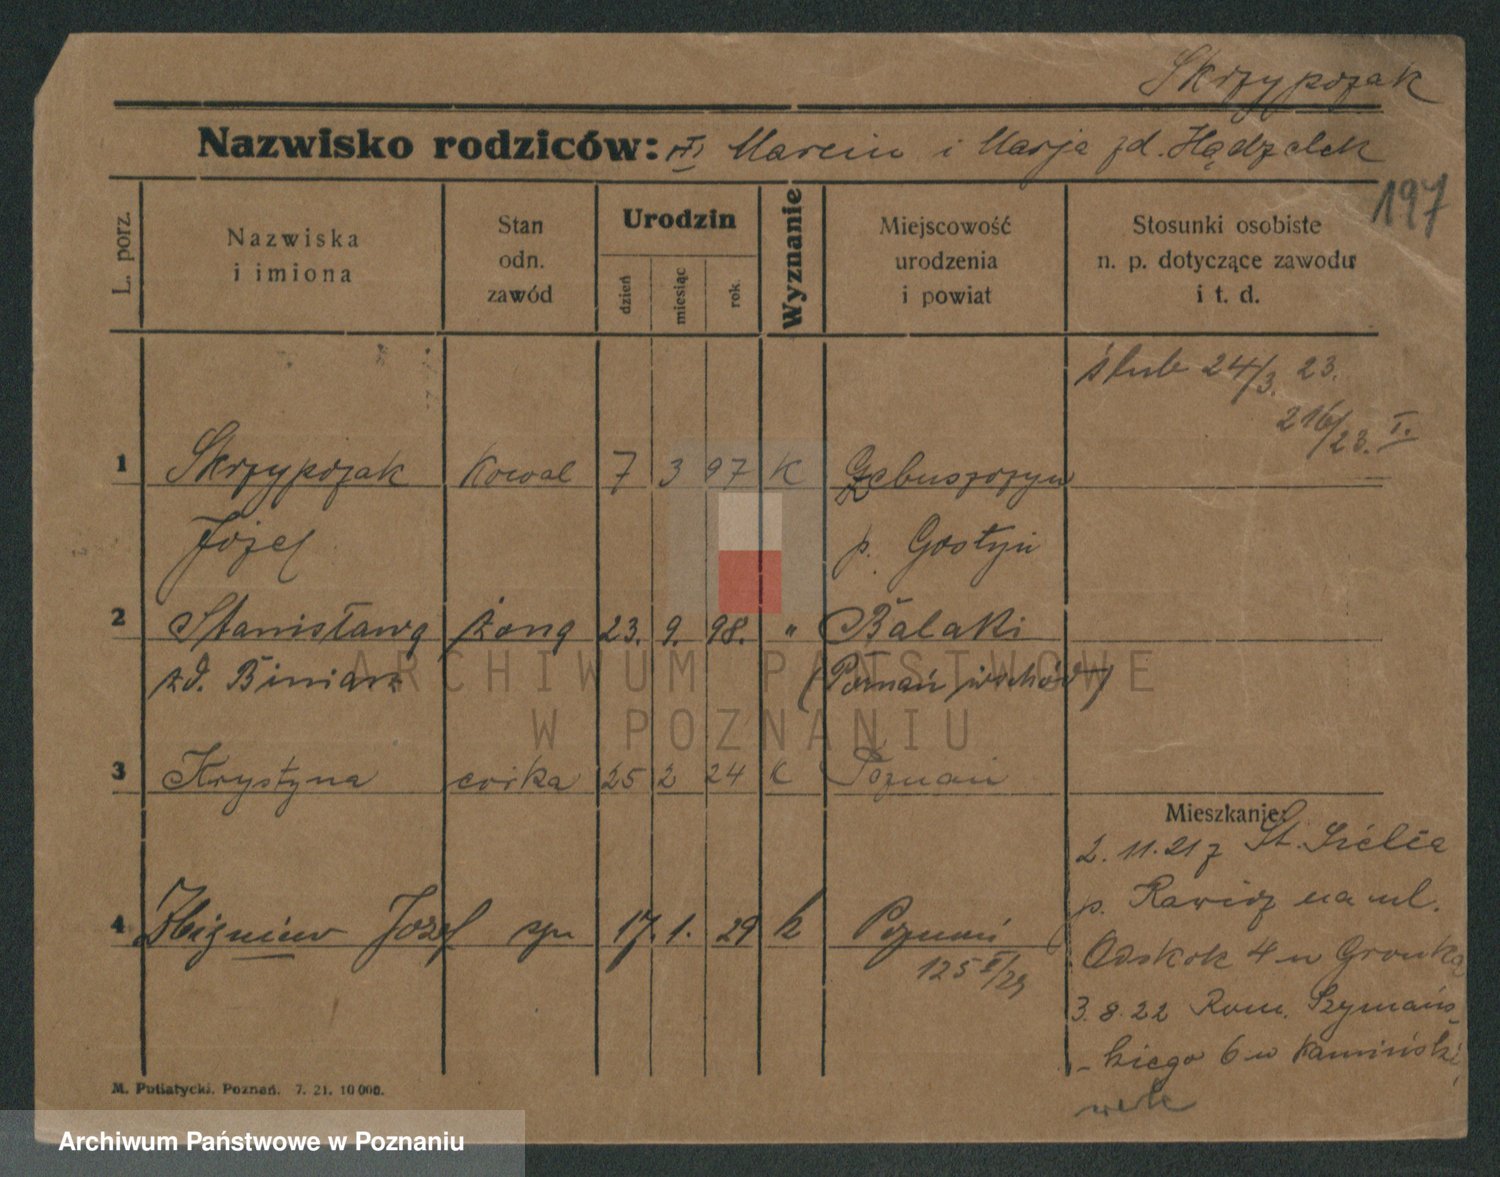 Skrzypczak
Nazwisko rodziców: Marcin i Marja zd. Hądzelek
197
L. porz.
Nazwiska
i imiona
Stan
odn.
zawód
Urodzin
dzień
miesiąc
rok.
Wyznanie
Miejscowość
urodzenia
i powiat
Stosunki osobiste
n. p. dotyczące zawodu
i t. d.
ślub 24/3. 23.
216/23. I.
1 Skrzypczak kowal 7 3 97 K
Józef p. Gostyń
2 Stanisława żona 23. 9. 98. " Bălaki
zd. Biniarz (Poznań wschód)
3 Krystyna córka 25 2 24 K Poznań
4 Zbigniew Józef syn 17. 1. 29 k Poznań
125 II/29
Mieszkanie:
2. 11. 21 z St. Sielca
p. Rawicz na ul.
Odskok 4 u Gronka
3. 8. 22 Rom. Szymańs-
-kiego 6 u Kamiński
M. Putiatycki. Poznań. 7. 21. 10 000.
ARCHIWUM PAŃSTWOWE
W POZNANIU
Archiwum Państwowe w Poznaniu